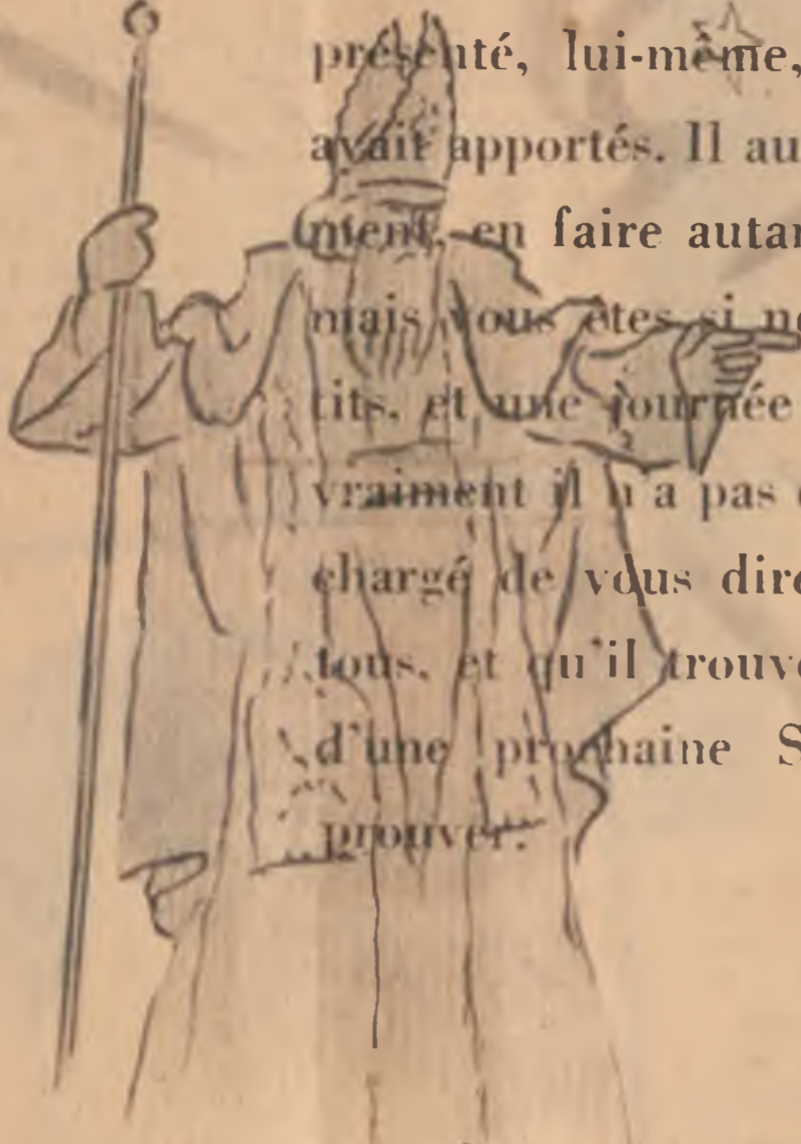 présenté, lui-même,
avait apportés. Il au
ment, en faire autan
mais vous êtes si no
tits, et une journée
vraiment il n'a pas
chargé de vous dire
tous, et qu'il trouve
d'une prochaine S
prouver.